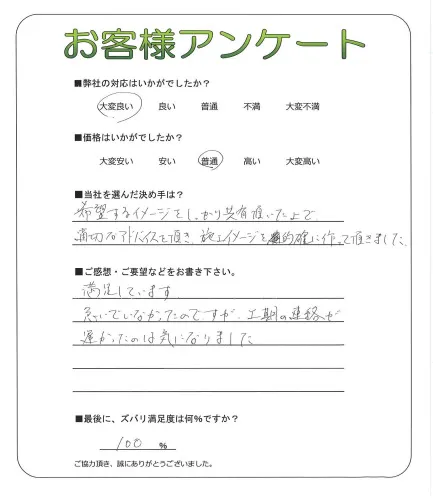 お客様アンケート
■弊社の対応はいかがでしたか？
大変良い 良い 普通 不満 大変不満
■価格はいかがでしたか？
大変安い 安い 普通 高い 大変高い
■当社を選んだ決め手は？
希望するイメージをしっかり共有頂いた上で
適切なアドバイスを頂き、施工イメージを的確に作って頂きました。
■ご感想・ご要望などをお書き下さい。
満足しています
急いでいなかったのですが、工期の連絡が
遅かったのは気になりました
■最後に、ズバリ満足度は何%ですか？
100 %
ご協力頂き、誠にありがとうございました。